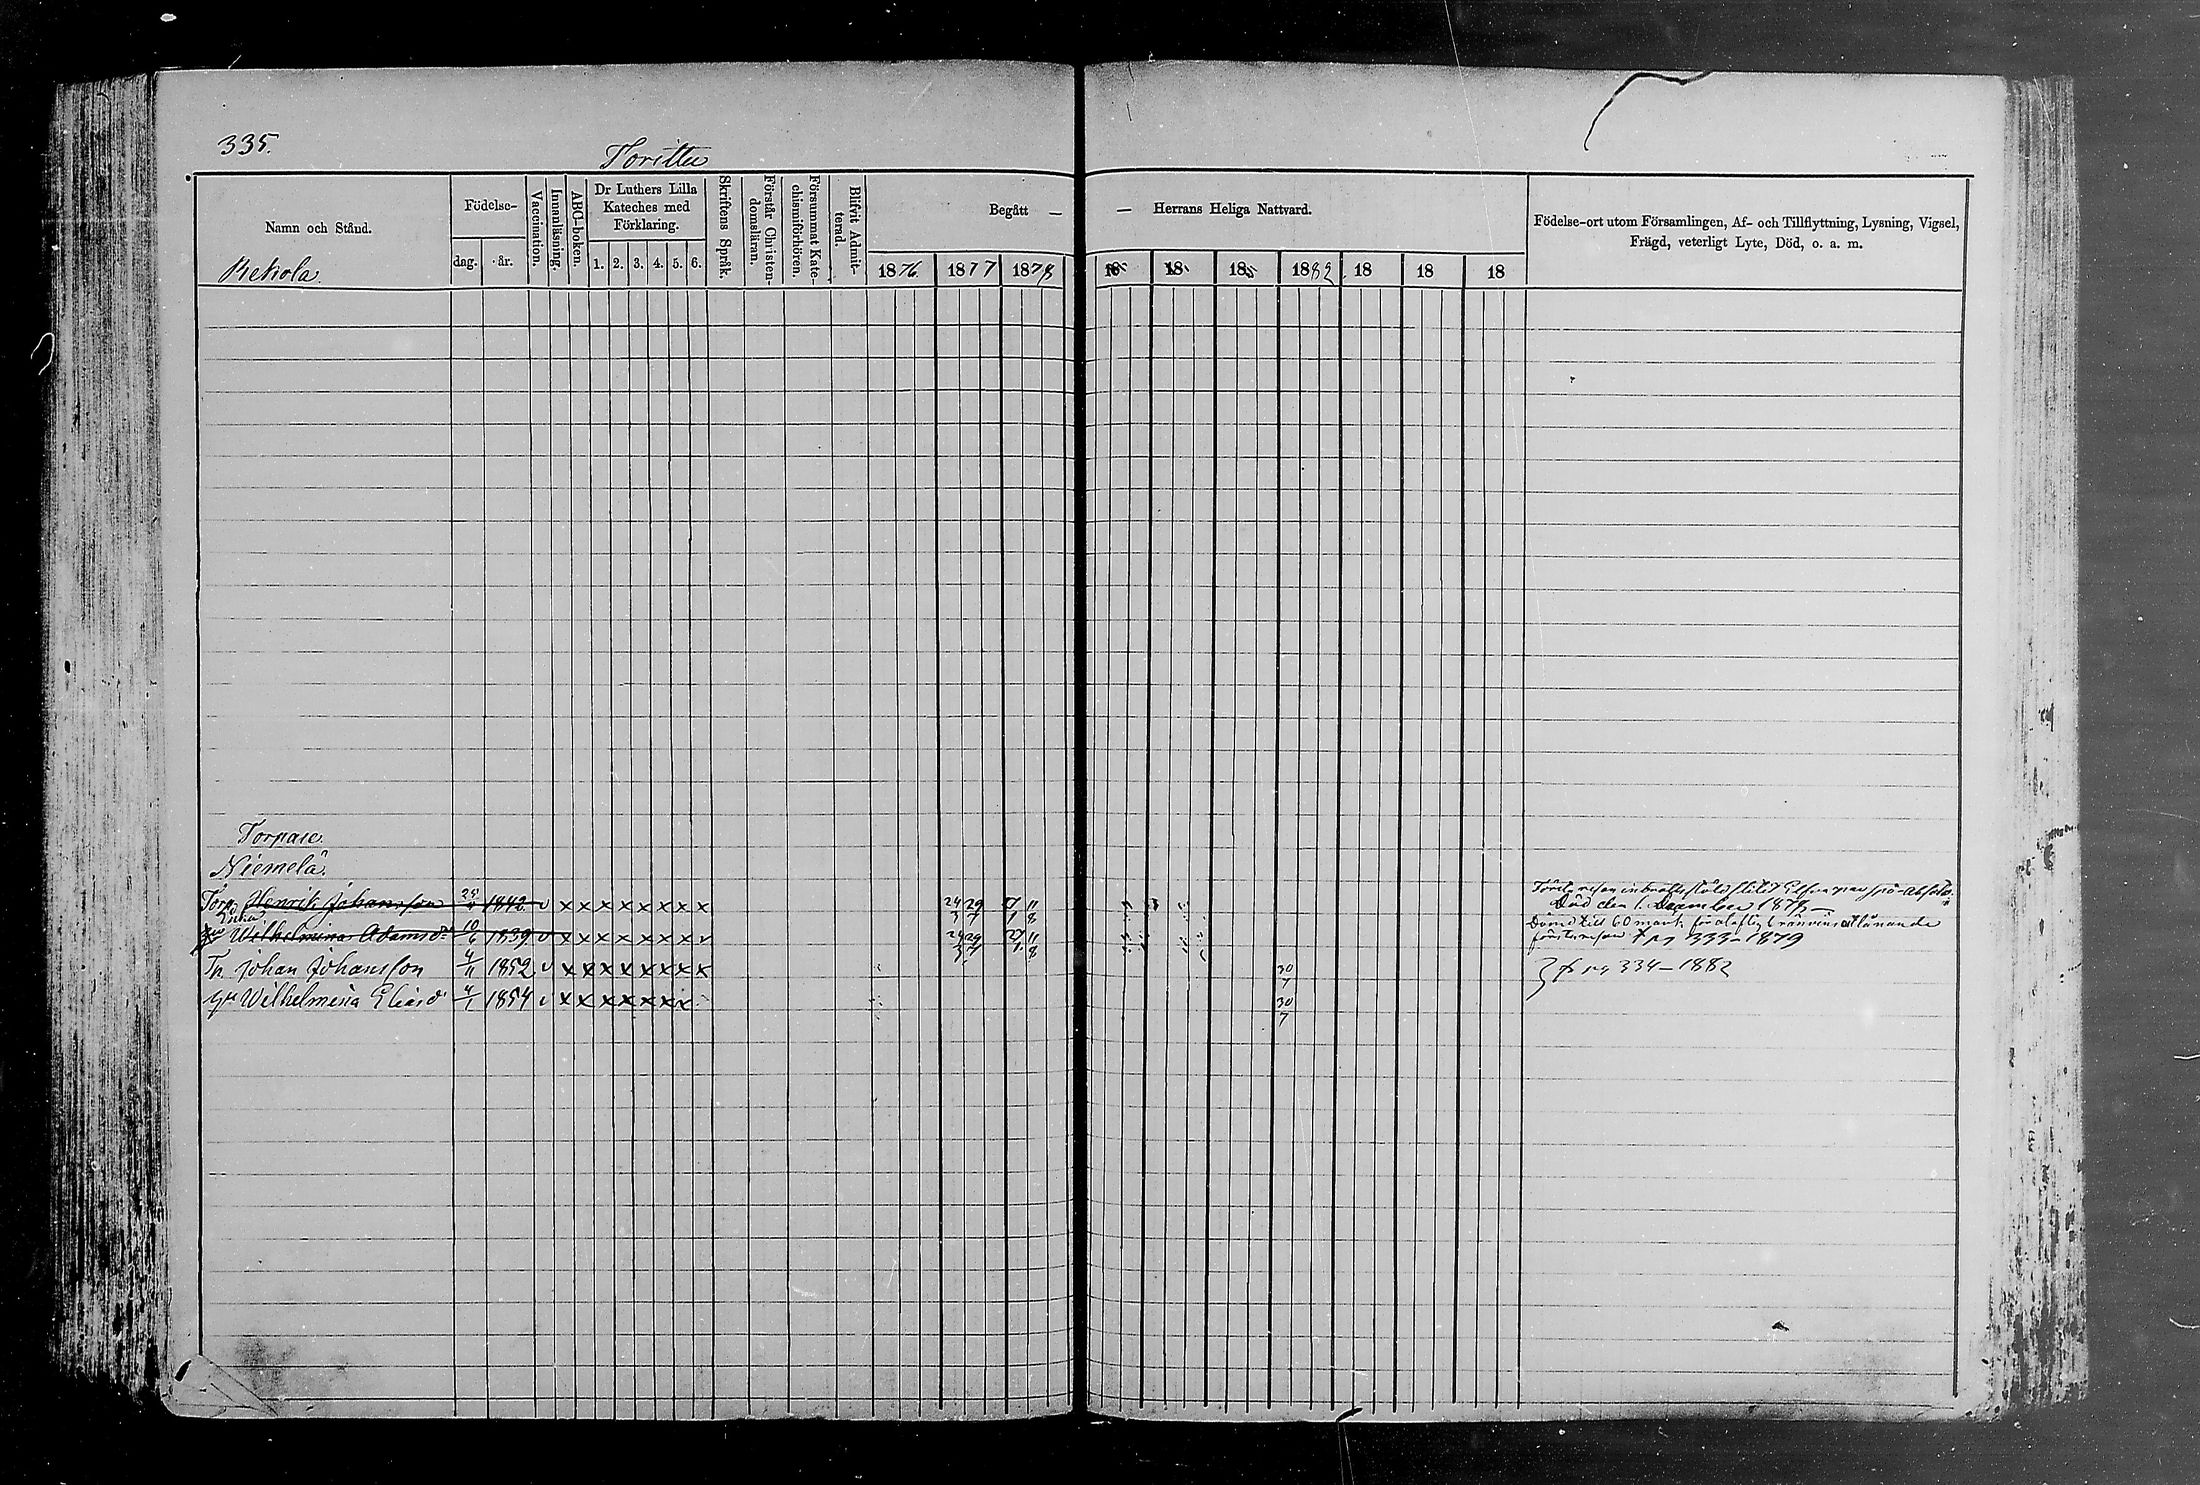 335.
Toritu
Namn och Stånd.
Rekola.
Födelse-
dag. år.
Vaccination.
Innanläsning.
ABC-boken.
Dr Luthers Lilla
Kateches med
Förklaring.
1. 2. 3. 4. 5. 6.
Skriftens Språk.
Förstår Christen-
domsläran.
Försummat Kate-
chismiförhören.
Blifvit Admit-
terad.
Begått — — Herrans Heliga Nattvard.
1876 1877 1878 18 18 18 1882 18 18 18
Födelse-ort utom Församlingen, Af- och Tillflyttning, Lysning, Vigsel,
Frägd, veterligt Lyte, Död, o. a. m.
Torpare
Niemelä.
Torp. Henrik Johansson 25/11 1842 v x x x x x x x x 24/3 29/7 11/8
Död den 1. December 1878
Enkan
Wilhelmina Adamsdr 10/6 1839 v x x x x x x x v 24/3 29/7 11/8
Dömd till 60 mark för olaflig bränvins utlånande
första resan pg 333–1879
Tp Johan Johansson 4/11 1852 v x x x x x x x x 30/7
fr pg 334–1882
Hu Wilhelmina Eliasdr 4/1 1854 v x x x x x x x 30/7